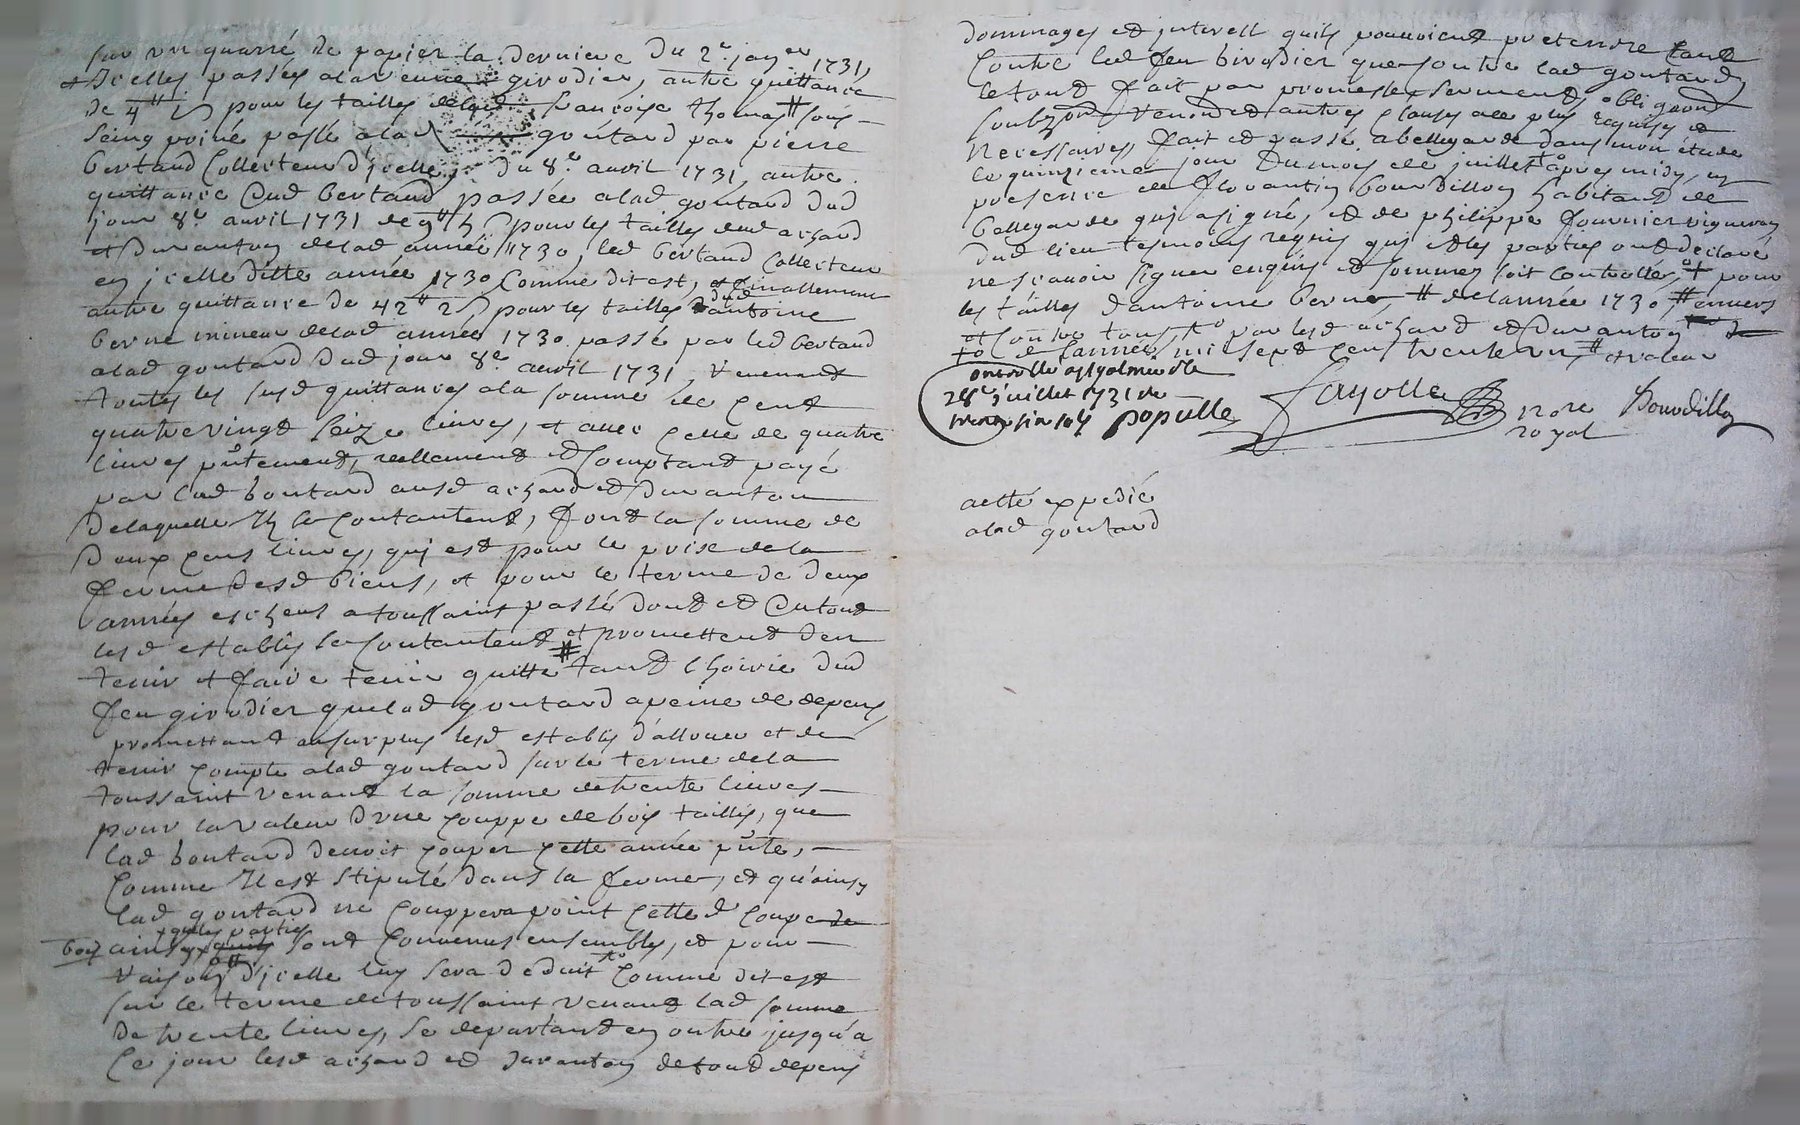 sur un quarré de papier la derniere du 2e janer 1731,
+ Jcelles passées a la veuve girodier, autre quittance
de 4# pour les tailles de lad françoise thomas # sous
seing privé passé a lad goutard par pierre
bertand Collecteur d'jcelles, du 8e avril 1731, autre
quittance dud bertand passée a lad goutard dud
jour 8e avril 1731 de 9# pour les tailles dud achard
et duranton de lad année 1730, led bertand Collecteur
en jcelle ditte année 1730 Comme dit est, et finallement
autre quittance de 42# 2s pour les tailles dud antoine
berne mineur de lad année 1730 passé par led bertand
a lad goutard dud jour 8e avril 1731, revenant
toutes les susd quittances a la somme de cent
quatre vingt seize livres, et avec celle de quatre
livres pntement, reellement et Comptant payé
par lad boutard ausd achard et duranton
De laquelle Ils se Contantent, font la somme de
Deux cens livres, qui est pour le prise de la
ferme desd biens, et pour le terme de deux
années escheus a toussaint passé dont et du tout
lesd establis se Contantent et promettent den
#
tenir et faire tenir quitte tant l'hoirie dud
feu girodier que lad goutard a peine de depens
promettant au surplus lesd establis d'allouer et de
tenir Compte a lad goutard sur le terme de la
toussaint venant la somme de trente livres
pour la valeur d'une Couppe de bois taillis, que
lad boutard devoit couper cette année pnte,
Comme Il est stipulé dans la ferme, et qu'ainsy
lad goutard ne Couppera point cette d Coupe de
x que les parties
bois ainsy x quils sont Convenus ensembles, et pour
raison d'jcelle luy sera deduit to Comme dit est
sur le terme de toussaint venant lad somme
De trente livres, se departant en outre jusqu'a
Ce jour lesd achard et duranton de tout depens
dommages et interest quils pourroient pretendre tant
Contre led feu birodier que Contre lad goutard
le tout fait par promesses serments obligaons
soubzons renonons et autres clauses a ce plus requises et
necessaires, fait et passé a bellegarde dans mon étude
le quinzieme jour du mois de juillet to apres midy, en
presence de florantin bourdillon habitant de
bellegarde qui a signé, et de philippe fournier vigneron
dud lieu tesmoins requis qui et les parties ont declaré
ne scavoir signer enquis et sommés soit Controllé, et pour
les tailles d'antoine berne # de l'année 1730 # envers
et Contre tous to par lesd achard et duranton
to de l'année mil sept cens trente un # et valeur
Controllé a st galmier le
28e juillet 1731 Re
trente six sols populle
fayolle
nore royal
Bourdillon
actté expedié
a lad goutard